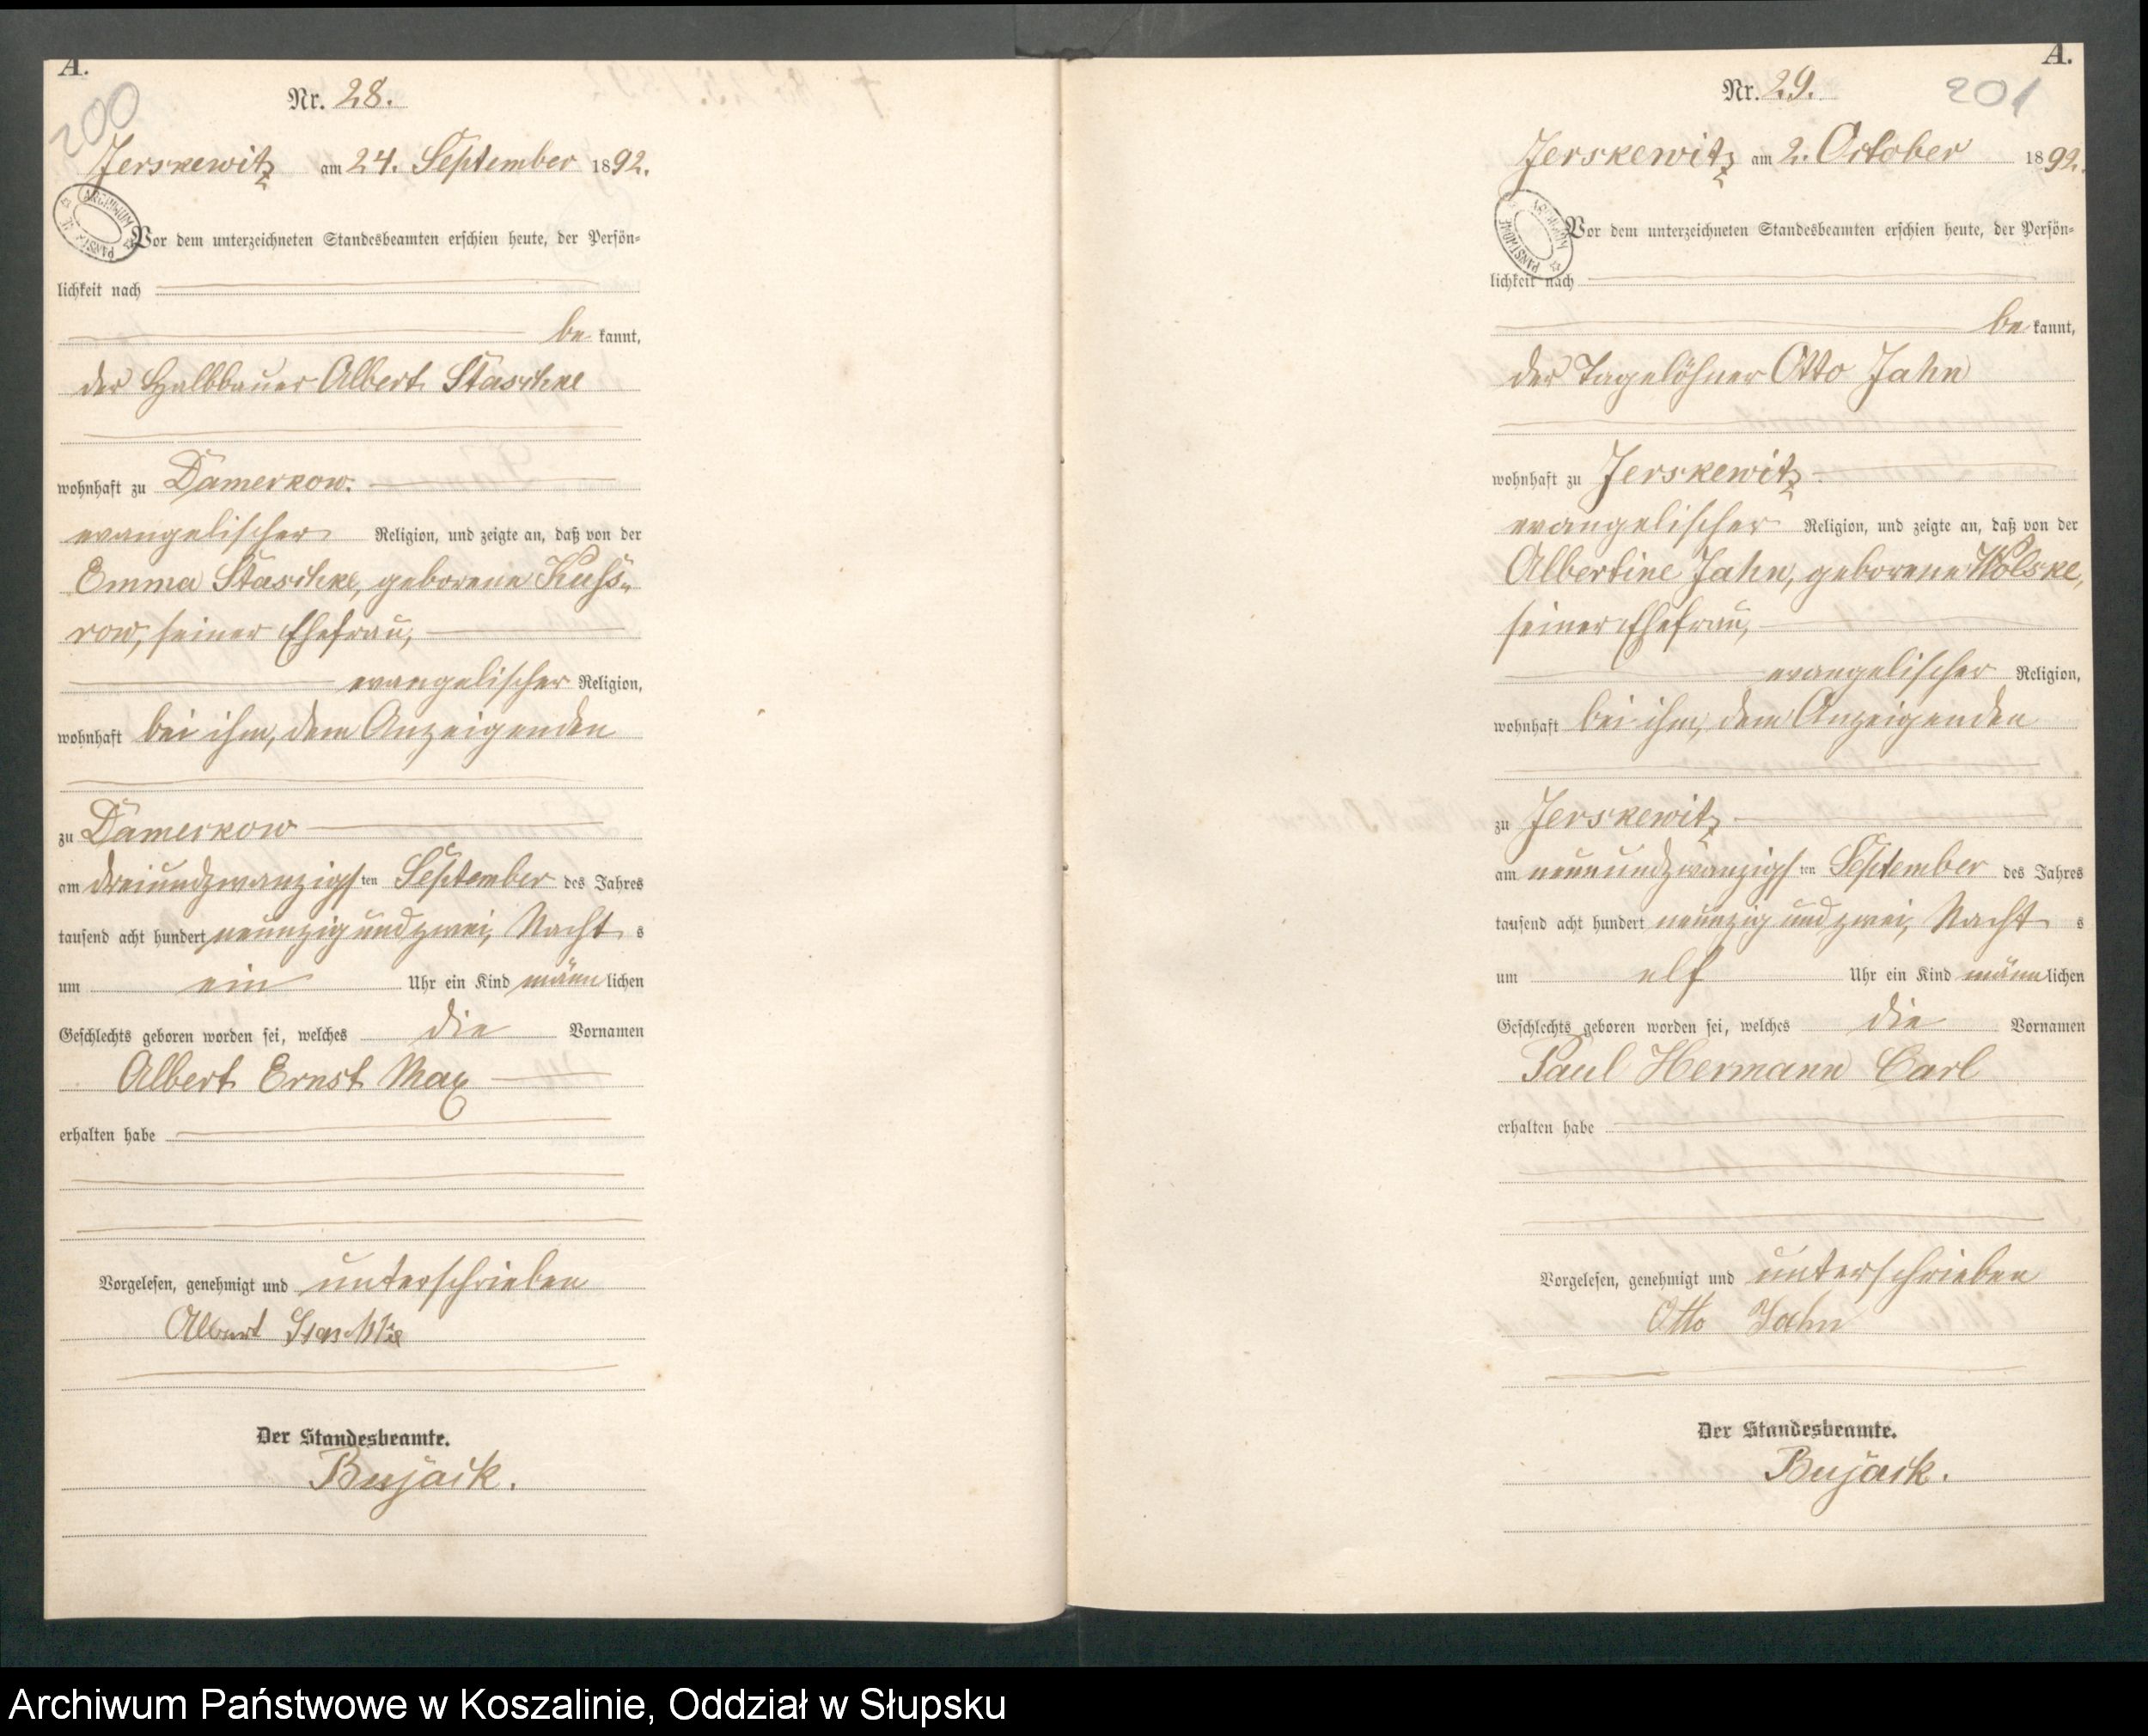 A.
200
Nr. 28.
Jerskewitz am 24. September 1892.
Vor dem unterzeichneten Standesbeamten erschien heute, der Persön-
lichkeit nach
be kannt,
der Halbbauer Albert Staschke
wohnhaft zu Damerkow.
evangelischer Religion, und zeigte an, daß von der
Emma Staschke, geborene Kuss-
row, seiner Ehefrau,
evangelischer Religion,
wohnhaft bei ihm, dem Anzeigenden
zu Damerkow
am dreiundzwanzigsten September des Jahres
tausend acht hundert neunzig und zwei, Nachts
um ein Uhr ein Kind männlichen
Geschlechts geboren worden sei, welches die Vornamen
Albert Ernst Max
erhalten habe
Vorgelesen, genehmigt und unterschrieben
Albert Staschke
Der Standesbeamte.
Bujack.
A.
201
Nr. 29.
Jerskewitz am 2. October 1892.
Vor dem unterzeichneten Standesbeamten erschien heute, der Persön-
lichkeit nach
be kannt,
der Tagelöhner Otto Jahn
wohnhaft zu Jerskewitz
evangelischer Religion, und zeigte an, daß von der
Albertine Jahn, geborene Wolske,
seiner Ehefrau,
evangelischer Religion,
wohnhaft bei ihm, dem Anzeigenden
zu Jerskewitz
am neunundzwanzigsten September des Jahres
tausend acht hundert neunzig und zwei, Nachts
um elf Uhr ein Kind männlichen
Geschlechts geboren worden sei, welches die Vornamen
Paul Hermann Carl
erhalten habe
Vorgelesen, genehmigt und unterschrieben
Otto Jahn
Der Standesbeamte.
Bujack.
Archiwum Państwowe w Koszalinie, Oddział w Słupsku